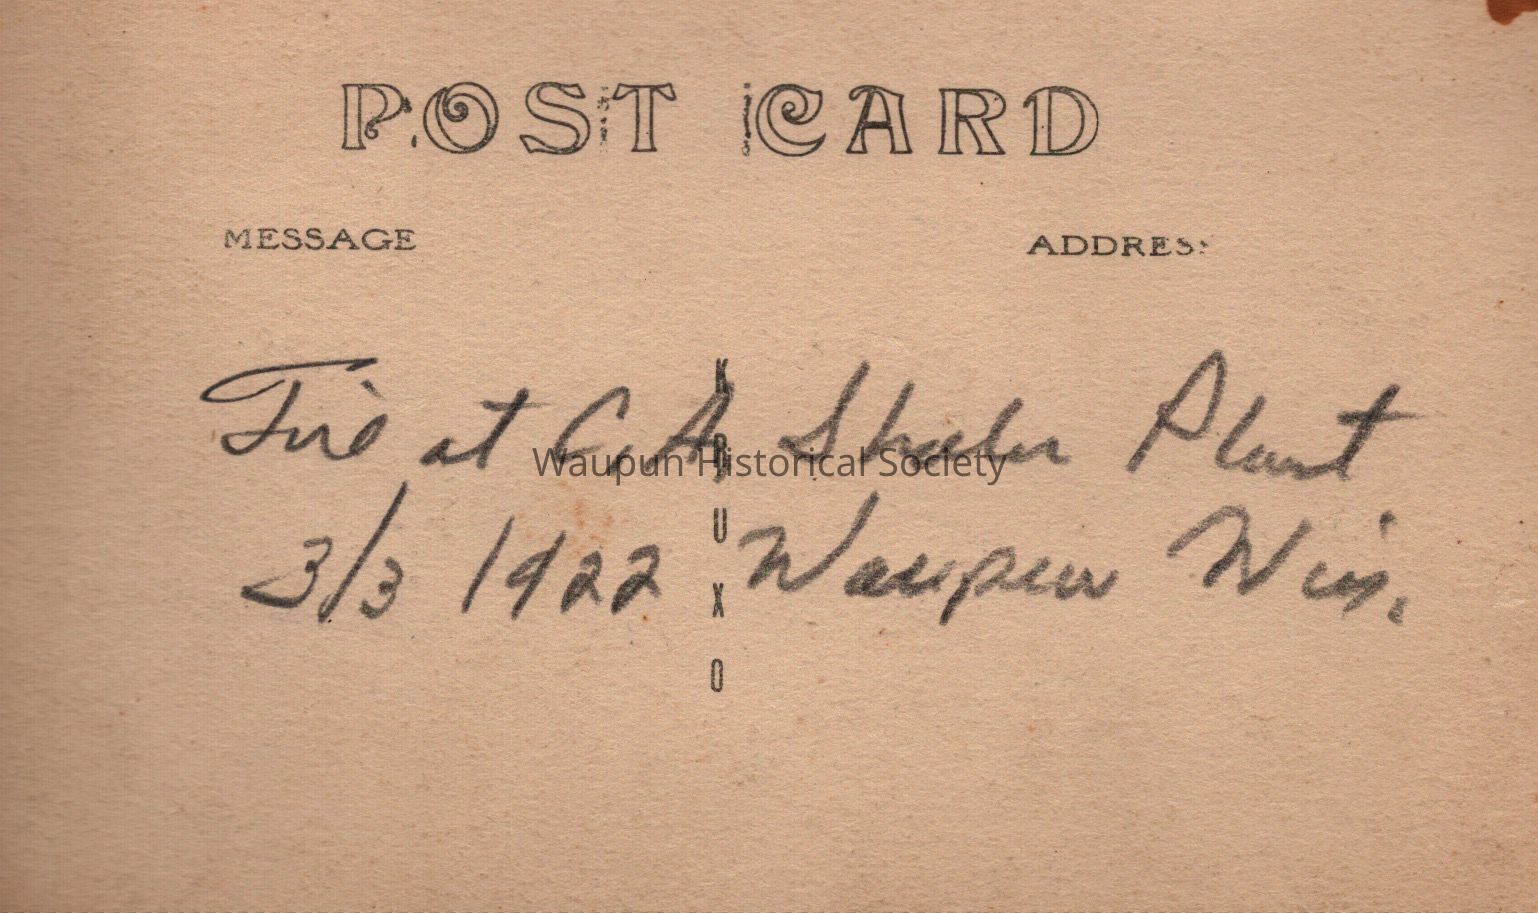 POST CARD
MESSAGE
ADDRESS
Fire at C. A. Shaler Plant
3/3 1922 Waupun Wis.
KRUXO
Waupun Historical Society